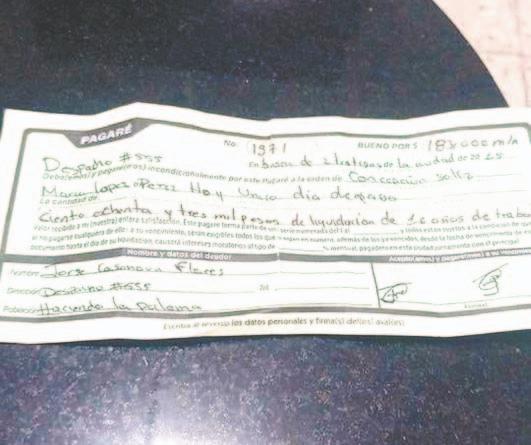 PAGARÉ
No. 1971 BUENO POR $ 183000 m/n
Despaño #555 En busca de 2 testigos de la ciudad de 20 25
Debe(mos) y pagaré(mos) incondicionalmente por este Pagaré a la orden de Concepción Soltz
Maria Lopez Perez Hoy Unico dia de pago
La cantidad de
Ciento ochenta y tres mil pesos de liquidación de 16 años de traba
Valor recibido a mi (nuestra) entera satisfacción. Este pagaré forma parte de un serie numerada del 1 al y todos estos sujetos a la condición de que
al no pagarse cualquiera de ello: a su vencimiento, serán exigibles todos los que le sigan en número, además de los ya vencidos, desde la fecha de vencimiento de es
documento hasta el día de su liquidación, causará intereses moratorios al tipo de % mensual, pagadero en esta ciudad juntamente con el principal
Nombre y datos del deudor Acepto(amos) y pagaré(mos) a su vencimien
Nombre Jorge Casanova Flores
Dirección Despaño #555 Tel.
Población Hacienda la paloma
Firma(s)
Escriba al reverso los datos personales y firma(s) de(los) aval(es)